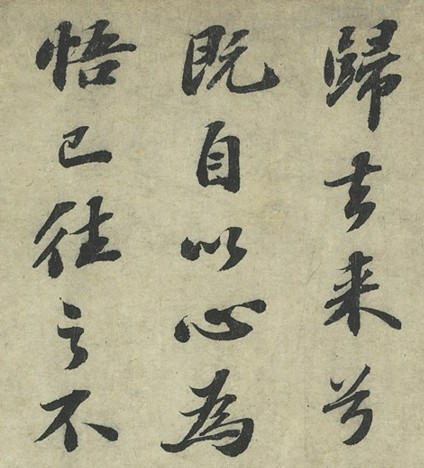 歸去来兮
既自以心為
悟已往之不